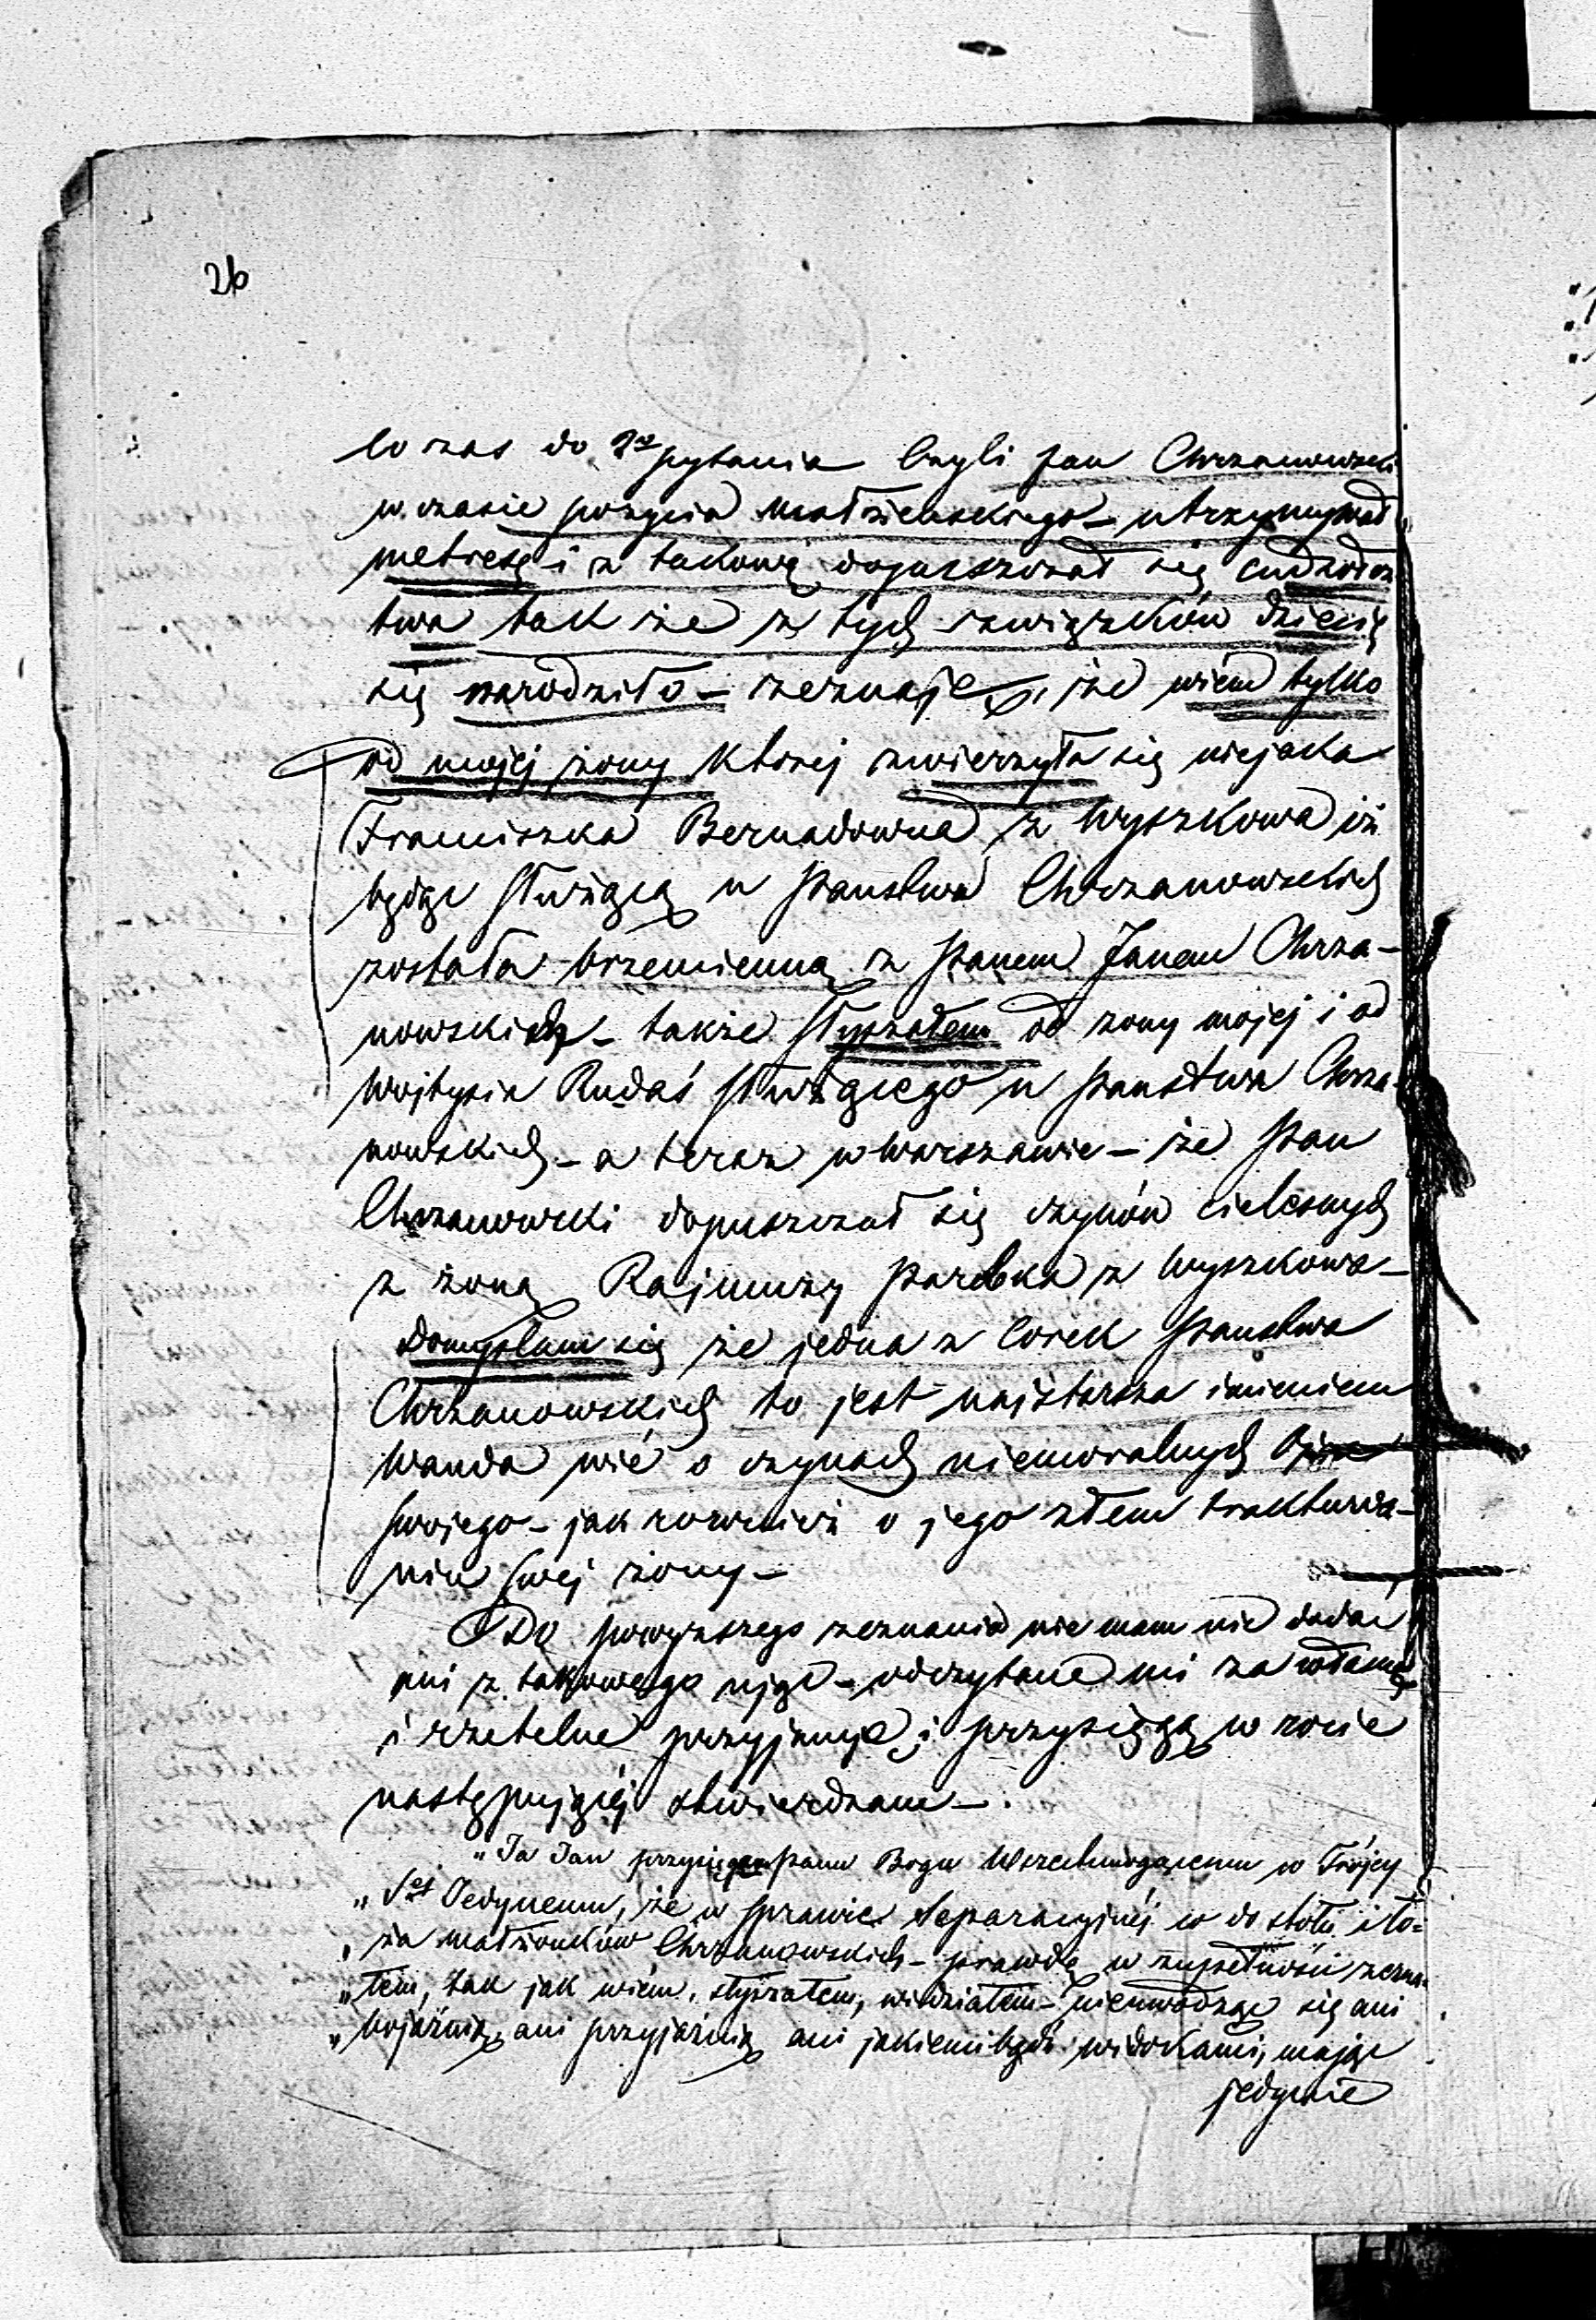 26
Co zas do 2go pytania czyli pan Chrzanowski
w czasie pożycia małżeńskiego – utrzymywał
metresę i z takową dopuszczał się cudzołoz
twa tak że z tych związków dziecię
się narodziło – zeznaję, że wiem tylko
od mojej żony której zwierzyła się niejaka
Franciszka Bernadowna z Wyszkowa iż
będąc służącą u Państwa Chrzanowskich
została brzemienną z Panem Janem Chrza–
nowskim – także słyszałem od żony mojej i od
Wojtysia Rudaś służącego u Państwa Chrza-
nowskich – a teraz w Warszawie – że Pan
Chrzanowski dopuszczał się czynów cielesnych
z żoną Rajmuzy Parobka z Wyszkowa –
Domyślam się że jedna z Córek Państwa
Chrzanowskich to jest najstarsza imieniem
Wanda wié o czynach niemoralnych Ojca
swojego – jak rozwnież o jego złem traktowa–
niu swej żony –
Do powyższego zeznania nie mam nic dodać
ani z takowego ująć – odczytane mi za własne
i rzetelne przyjmuję i przysięgą w rocie
następującéj stwierdzam – .
"Ja Jan przysięgam Panu Bogu Wszechmogącemu w Trójcy
" Sej Jedynemu, że w sprawie Separacyjnéj co do stołu i ło=
" ża małżonków Chrzanowskich – prawdę w zupełności zezna=
" łem, tak jak wiem, słyszałem, widziałem – nieuwodząc się ani
" bojaźnią, ani przyjaźnią ani jakiemibądź widokami, mając
jedynie